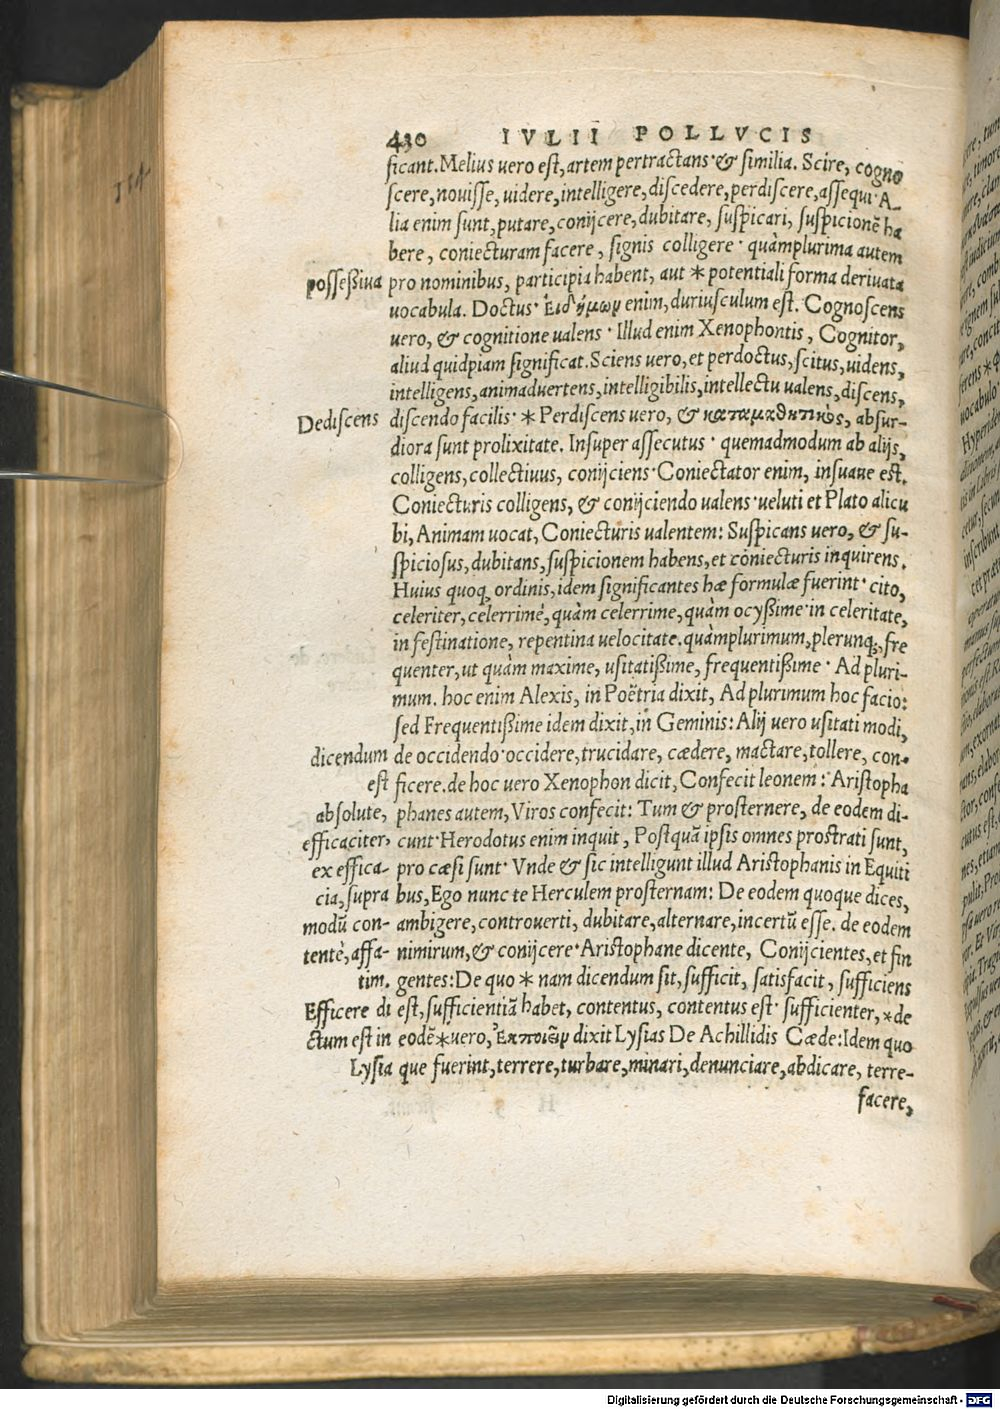 430 IVLII POLLVCIS
ficant. Melius uero est, artem pertractans· & similia. Scire, cogno
scere, nouisse, uidere, intelligere, discedere, perdiscere, assequi· A-
lia enim sunt, putare, conijcere, dubitare, suspicari, suspicionē ha
bere, coniecturam facere, signis colligere· quàmplurima autem
possessiua pro nominibus, participia habent, aut * potentiali forma deriuata
uocabula. Doctus· Ἐιδήμων enim, duriusculum est. Cognoscens
uero, & cognitione ualens· Illud enim Xenophontis, Cognitor,
aliud quidpiam significat. Sciens uero, et perdoctus, scitus, uidens,
intelligens, animaduertens, intelligibilis, intellectu ualens, discens,
Dediscens discendo facilis· * Perdiscens uero, & καταμαθητικῶς, absur-
diora sunt prolixitate. Insuper assecutus· quemadmodum ab alijs,
colligens, collectiuus, conijciens· Coniectator enim, insuaue est.
Coniecturis colligens, & conijciendo ualens· ueluti et Plato alicu
bi, Animam uocat, Coniecturis ualentem: Suspicans uero, & su-
spiciosus, dubitans, suspicionem habens, et coniecturis inquirens.
Huius quoq; ordinis, idem significantes hæ formulæ fuerint· cito,
celeriter, celerrimè, quàm celerrime, quàm ocyssime· in celeritate,
in festinatione, repentina uelocitate. quàmplurimum, plerunq;, fre
quenter, ut quàm maxime, usitatissime, frequentissime· Ad pluri-
mum. hoc enim Alexis, in Poëtria dixit, Ad plurimum hoc facio:
sed Frequentissime idem dixit, in Geminis: Alij uero usitati modi,
dicendum de occidendo· occidere, trucidare, cædere, mactare, tollere, con-
est ficere. de hoc uero Xenophon dicit, Confecit leonem: Aristopha
absolute, phanes autem, Viros confecit: Tum & prosternere, de eodem di-
efficaciter, cunt· Herodotus enim inquit, Postquā ipsis omnes prostrati sunt,
ex effica- pro cæsi sunt· Vnde & sic intelligunt illud Aristophanis in Equiti
cia, supra bus, Ego nunc te Herculem prosternam: De eodem quoque dices,
modū con- ambigere, controuerti, dubitare, alternare, incertū esse. de eodem
tentè, affa- nimirum, & conijcere· Aristophane dicente, Conijcientes, et fin
tim. gentes: De quo * nam dicendum sit, sufficit, satisfacit, sufficiens
Efficere di est, sufficientiā habet, contentus, contentus est· sufficienter, * de
ctum est in eodē * uero, Ἐκποιεῖν dixit Lysias De Achillidis Cæde: Idem quo
Lysia que fuerint, terrere, turbare, minari, denunciare, abdicare, terre-
facere,
Digitalisierung gefördert durch die Deutsche Forschungsgemeinschaft - DFG